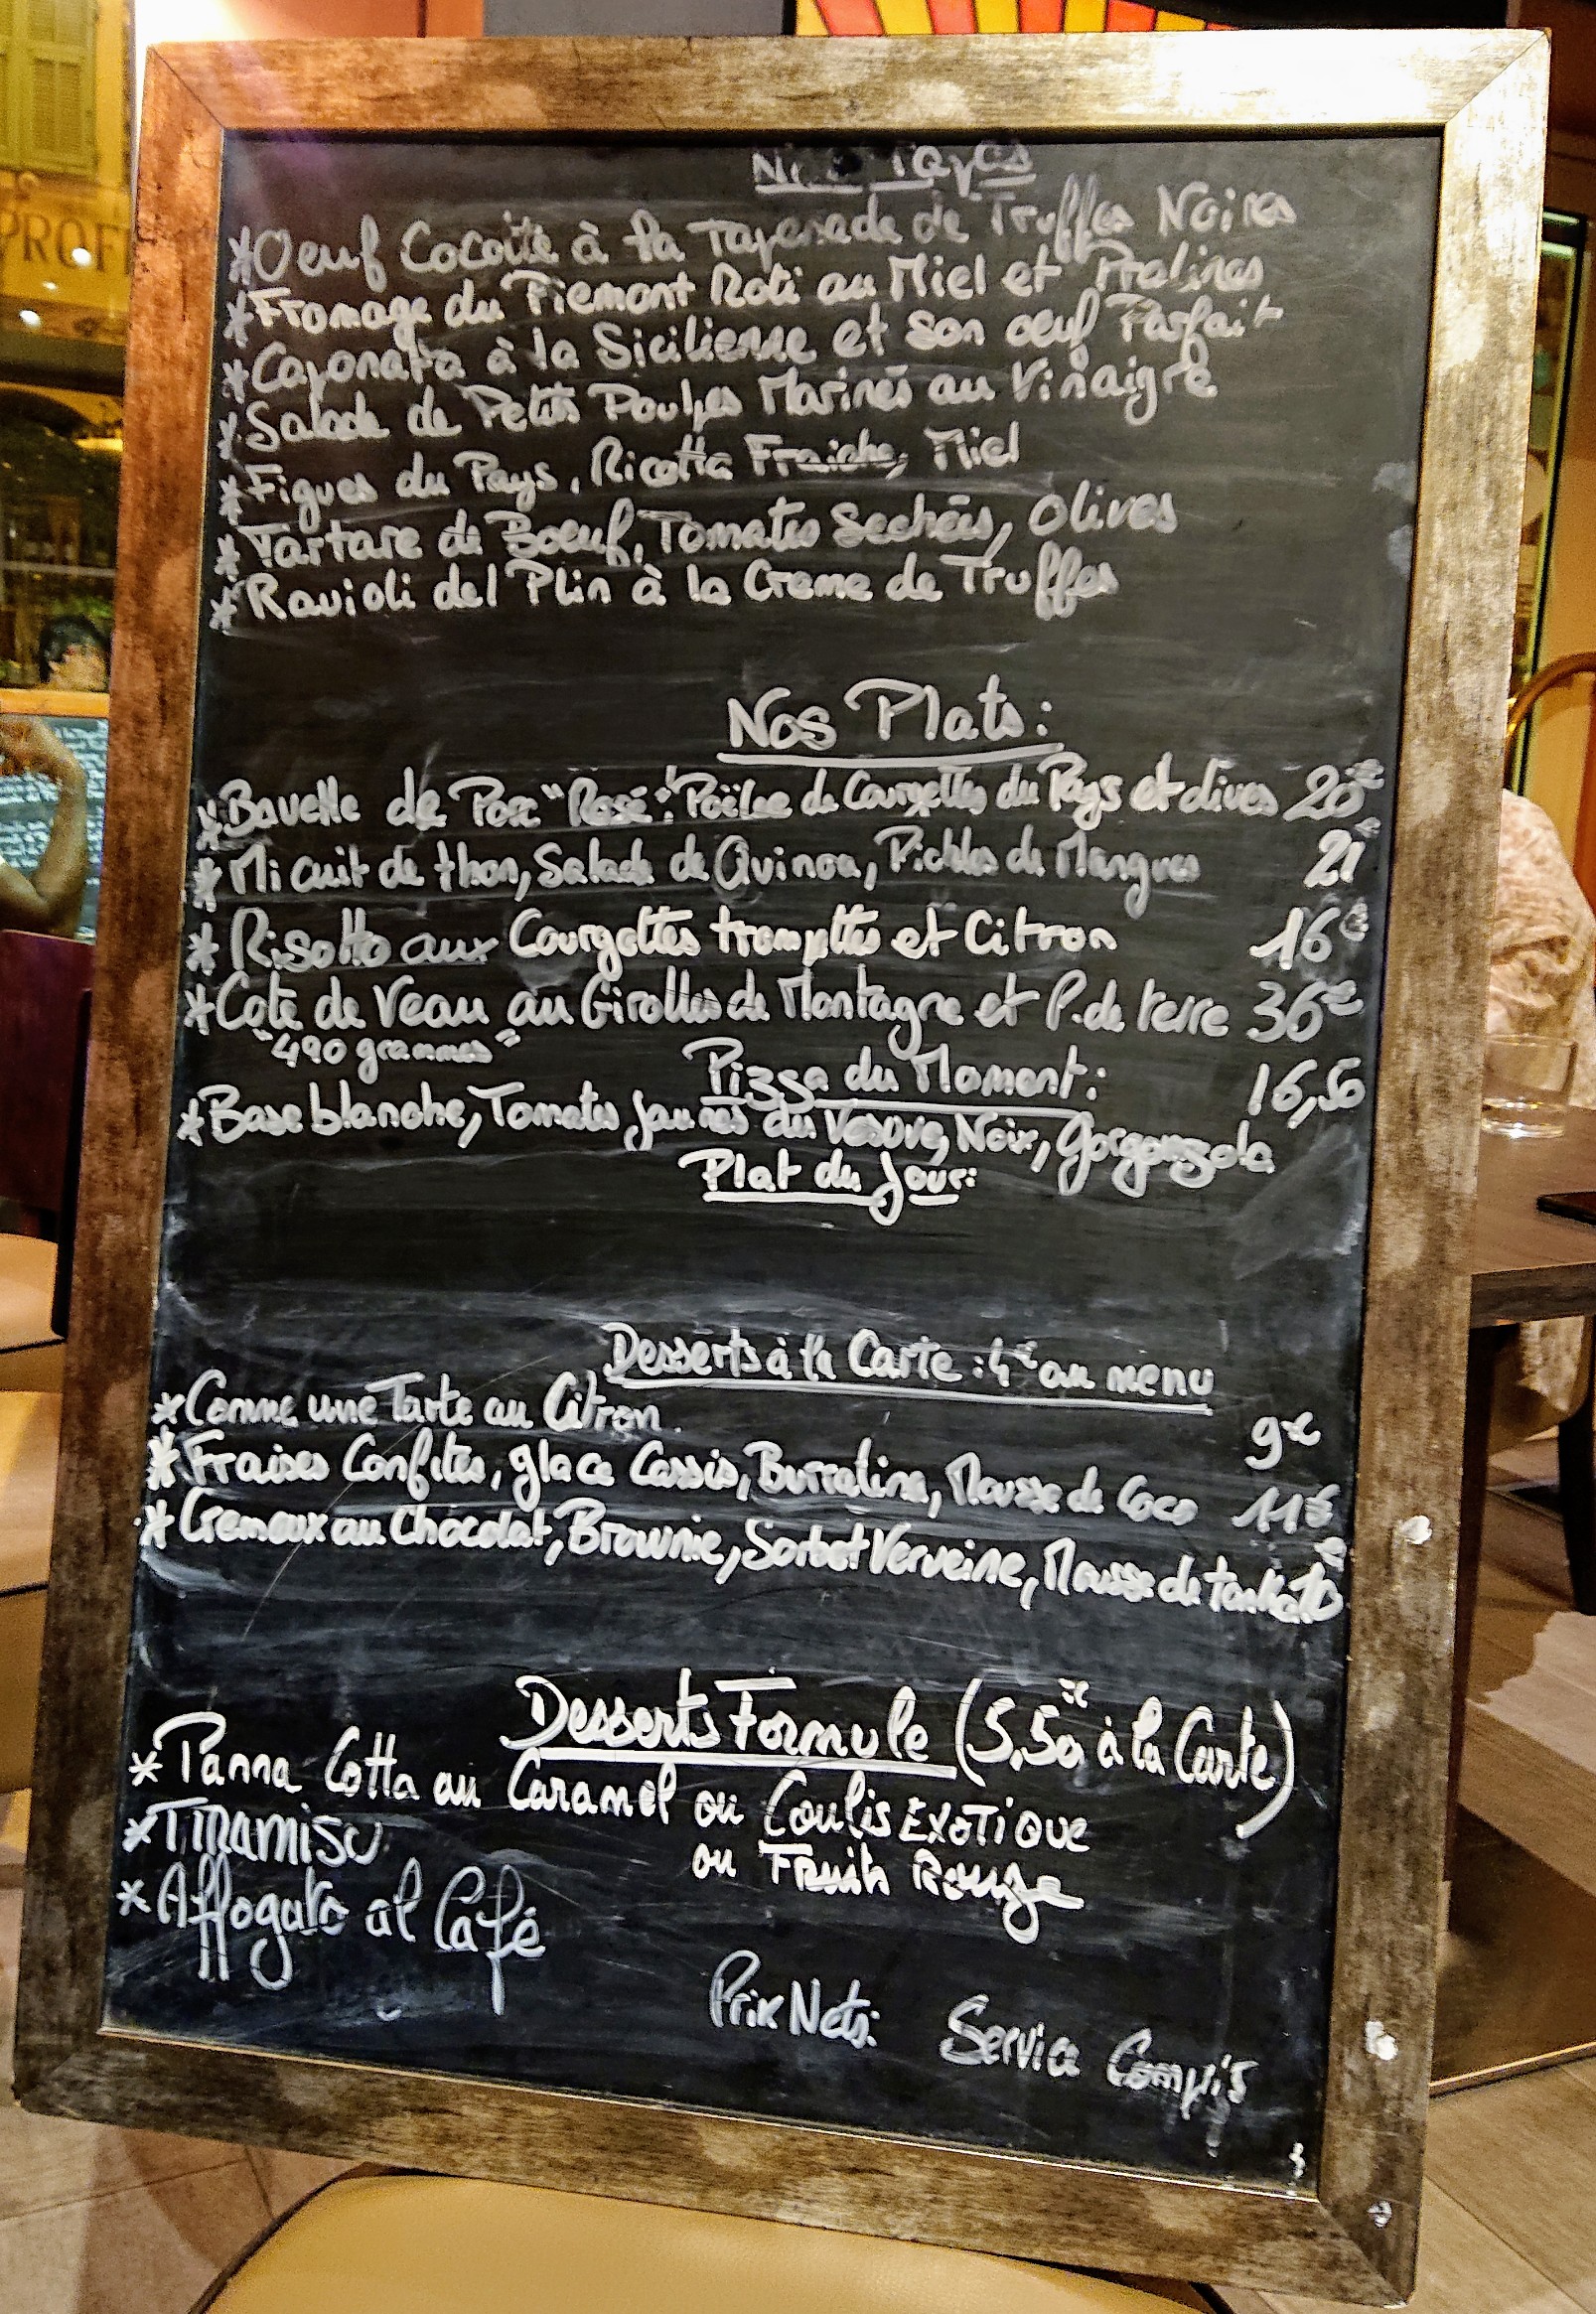 PROF
Tapas
*Oeuf Cocotte à la Tapenade de Truffes Noires
*Fromage du Piemont Roti au Miel et Pralines
*Caponata à la Sicilienne et son oeuf Parfait
*Salade de Petits Poulpes Marinés au Vinaigre
*Figues du Pays, Ricotta Fraiche, Miel
*Tartare de Boeuf, Tomates Sechées, Olives
*Ravioli del Plin à la Creme de Truffes
Nos Plats:
*Bavette de Porc "Rosé": Poëlee de Courgettes du Pays et olives 20€
*Mi cuit de thon, Salade de Quinoa, Pickles de Mangues 21€
*Risotto aux Courgettes trompettes et Citron 16€
*Cote de Veau au Girolles de Montagne et P. de terre 36€
"490 grammes"
Pizza du Moment: 16,50
*Base blanche, Tomates jaunes du Vesuve, Noix, Gorgonzola
Plat du jour:
Desserts à la Carte : 4€ au menu
*Comme une Tarte au Citron. 9€
*Fraises Confites, glace Cassis, Burratina, Mousse de Coco 11€
*Cremeux au Chocolat, Brownie, Sorbet Verveine, Mousse de tonka 10€
Desserts Formule (5,50€ à la Carte)
*Panna Cotta au Caramel ou Coulis EXOTIQUE
ou Fruits Rouge
*TIRAMISU
*Affogato al Café
Prix Nets: Service Compris